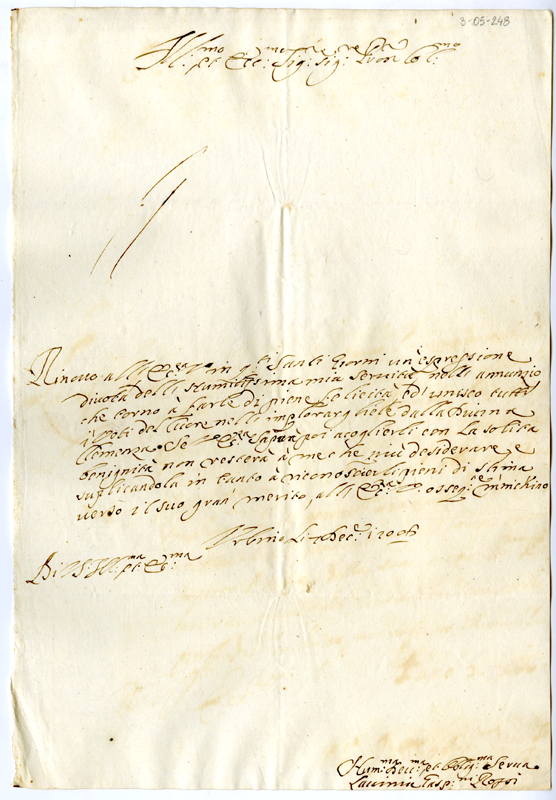 3-05-248
Ill.mo et Ecc.mo Sig.r Sig.r Pron Col.mo
Rinovo all'Ecc.za V. in q.ti Santi Giorni un'espressione
divota dell'Humilissima mia Servitù nell'annunzio
che torno à farle di piene Felicità, ed'unisco tutti
i Voti del Cuore nell'implorargliele dalla Divina
Clemenza. Se V. Ecc.za Saprà poi accoglierli con la solita
benignità non resterà à me che più desiderare, e
suplicandola in tanto à riconoscerli pieni di stima
verso il suo gran' merito, all'Ecc.za V. osseq.e m'inchino
Urbino Li Dec.e 1706
Di V.S. Ill.ma et Ecc.ma
Hum.ma Dev.ma et Obblig.ma Serva
Lavinia Gasp.ni Rossi